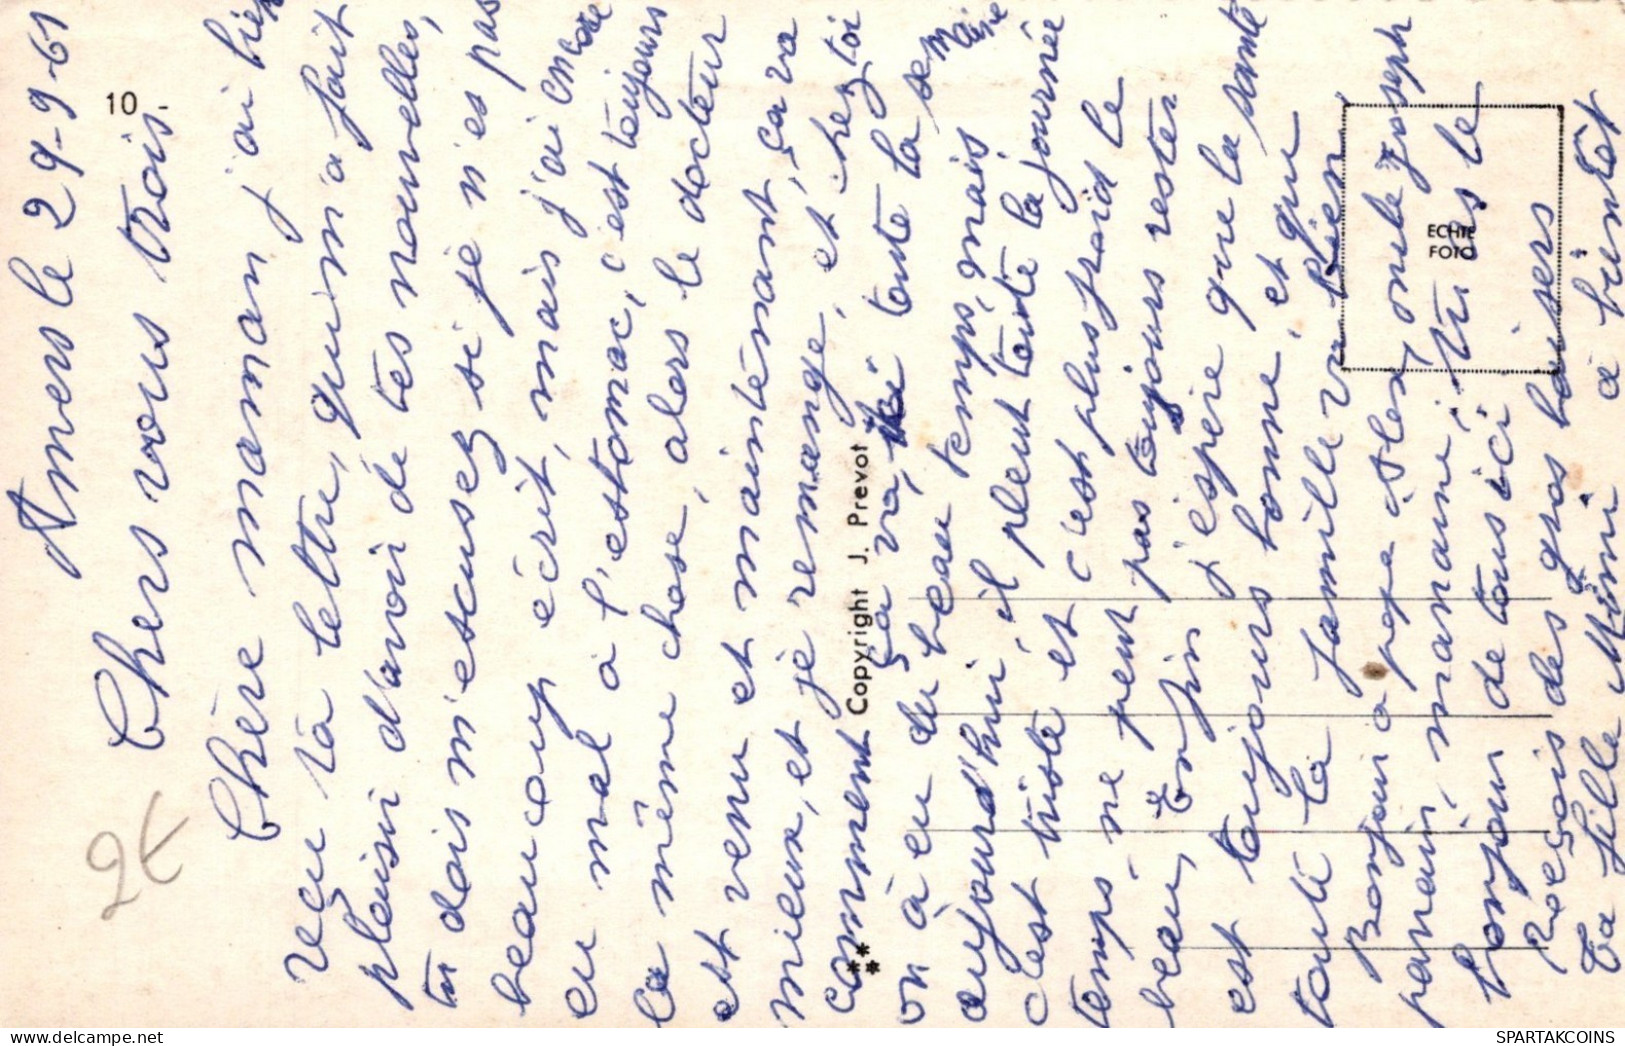 Anvers le 29-9-61
10 -
Chers vous trois.
Chère maman j'ai bien
reçu ta lettre, qui m'a fait
plaisir d'avoir de tes nouvelles,
tu dois m'escusez si je n'es pas
beaucoup écrit, mais j'ai encore
eu mal à l'estomac, c'est toujours
la même chose, alors le docteur
est venu et maintenant, ça va
mieux, et je remange, et chez toi
comment ça va, toute la semaine
on à eu du beau temps, mais
aujourd'hui, il pleut toute la journée
c'est triste et c'est plus froid le
temps. ne peut pas toujours rester
beau, Enfin j'espère que la santé
est toujours bonne, et que
toute la famille va bien
Bonjour a papa Joseph
parrain, mamanie,
bonjour de tous ici
Reçois des gros baisers
Ta fille Mimi à bientôt
2€
Copyright J. Prevot
ECHTE
FOTO
hippostcard.com
SPARTAKCOINS